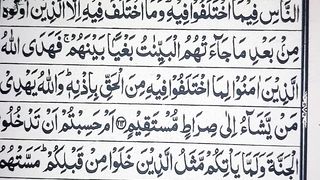 النَّاسِ فِيْمَا اخْتَلَفُوْا فِيْهِ وَمَا اخْتَلَفَ فِيْهِ اِلَّا الَّذِيْنَ اُوْتُوْهُ
مِنْۢ بَعْدِ مَا جَآءَتْهُمُ الْبَيِّنٰتُ بَغْيًۢا بَيْنَهُمْ ۚ فَهَدَى اللّٰهُ
الَّذِيْنَ اٰمَنُوْا لِمَا اخْتَلَفُوْا فِيْهِ مِنَ الْحَقِّ بِاِذْنِهٖ ؕ وَاللّٰهُ يَهْدِيْ
مَنْ يَّشَآءُ اِلٰى صِرَاطٍ مُّسْتَقِيْمٍ ﴿۲۱۳﴾ اَمْ حَسِبْتُمْ اَنْ تَدْخُلُوا
الْجَنَّةَ وَلَمَّا يَاْتِكُمْ مَّثَلُ الَّذِيْنَ خَلَوْا مِنْ قَبْلِكُمْ ؕ مَسَّتْهُمُ